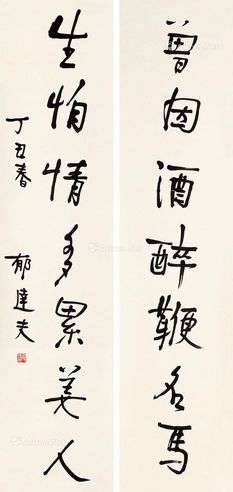 曾因酒醉鞭名馬
生怕情多累美人
丁丑春
郁達夫